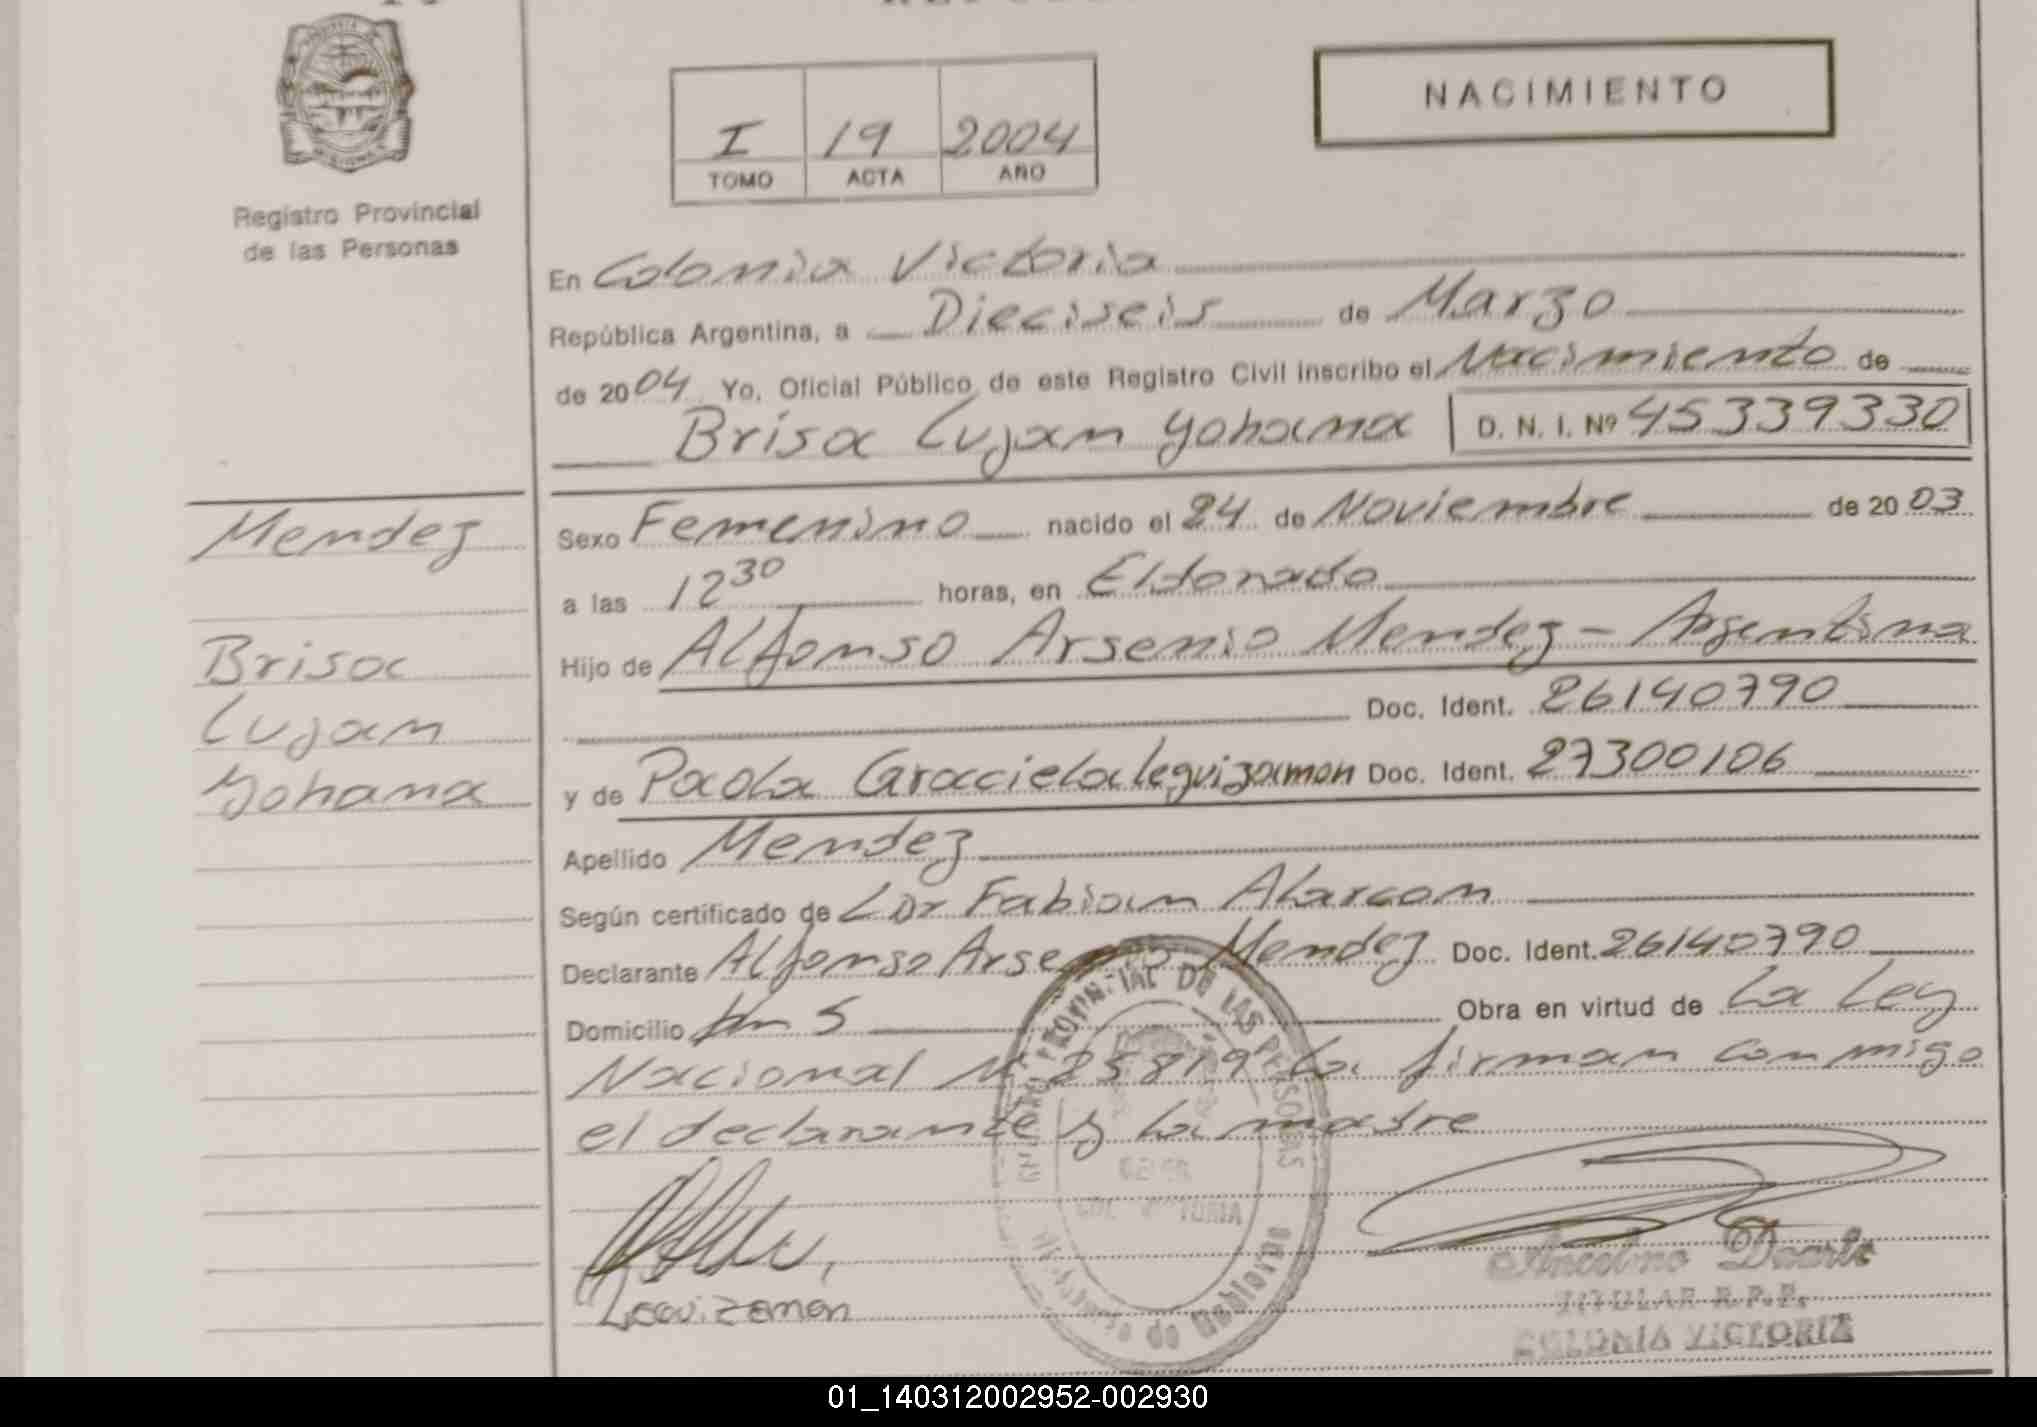 NACIMIENTO
I 19 2004
TOMO ACTA AÑO
Registro Provincial
de las Personas
En Colonia Victoria
República Argentina, a Dieciseis de Marzo
de 2004 Yo, Oficial Público de este Registro Civil inscribo el Nacimiento de
Brisa Lujan Yohana D. N. I. Nº 45339330
Mendez
Brisa
Lujan
Yohana
Sexo Femenino nacido el 24 de Noviembre de 2003
a las 12 30 horas, en Eldorado
Hijo de Alfonso Arsenio Mendez - Argentina
Doc. Ident. 26140790
y de Paola Graciela Leguizamon Doc. Ident. 27300106
Apellido Mendez
Según certificado de Dr Fabian Alarcon
Declarante Alfonso Arsenio Mendez Doc. Ident. 26140790
Domicilio km 5 Obra en virtud de La Ley
Nacional Nº 25819 La firman conmigo
el declarante y la madre
PROVINCIAL DE LAS PERSONAS
COL VICTORIA
de Gobierno
Leguizamon
Ancelmo Duarte
TITULAR R.P.P.
COLONIA VICTORIA
01_140312002952-002930